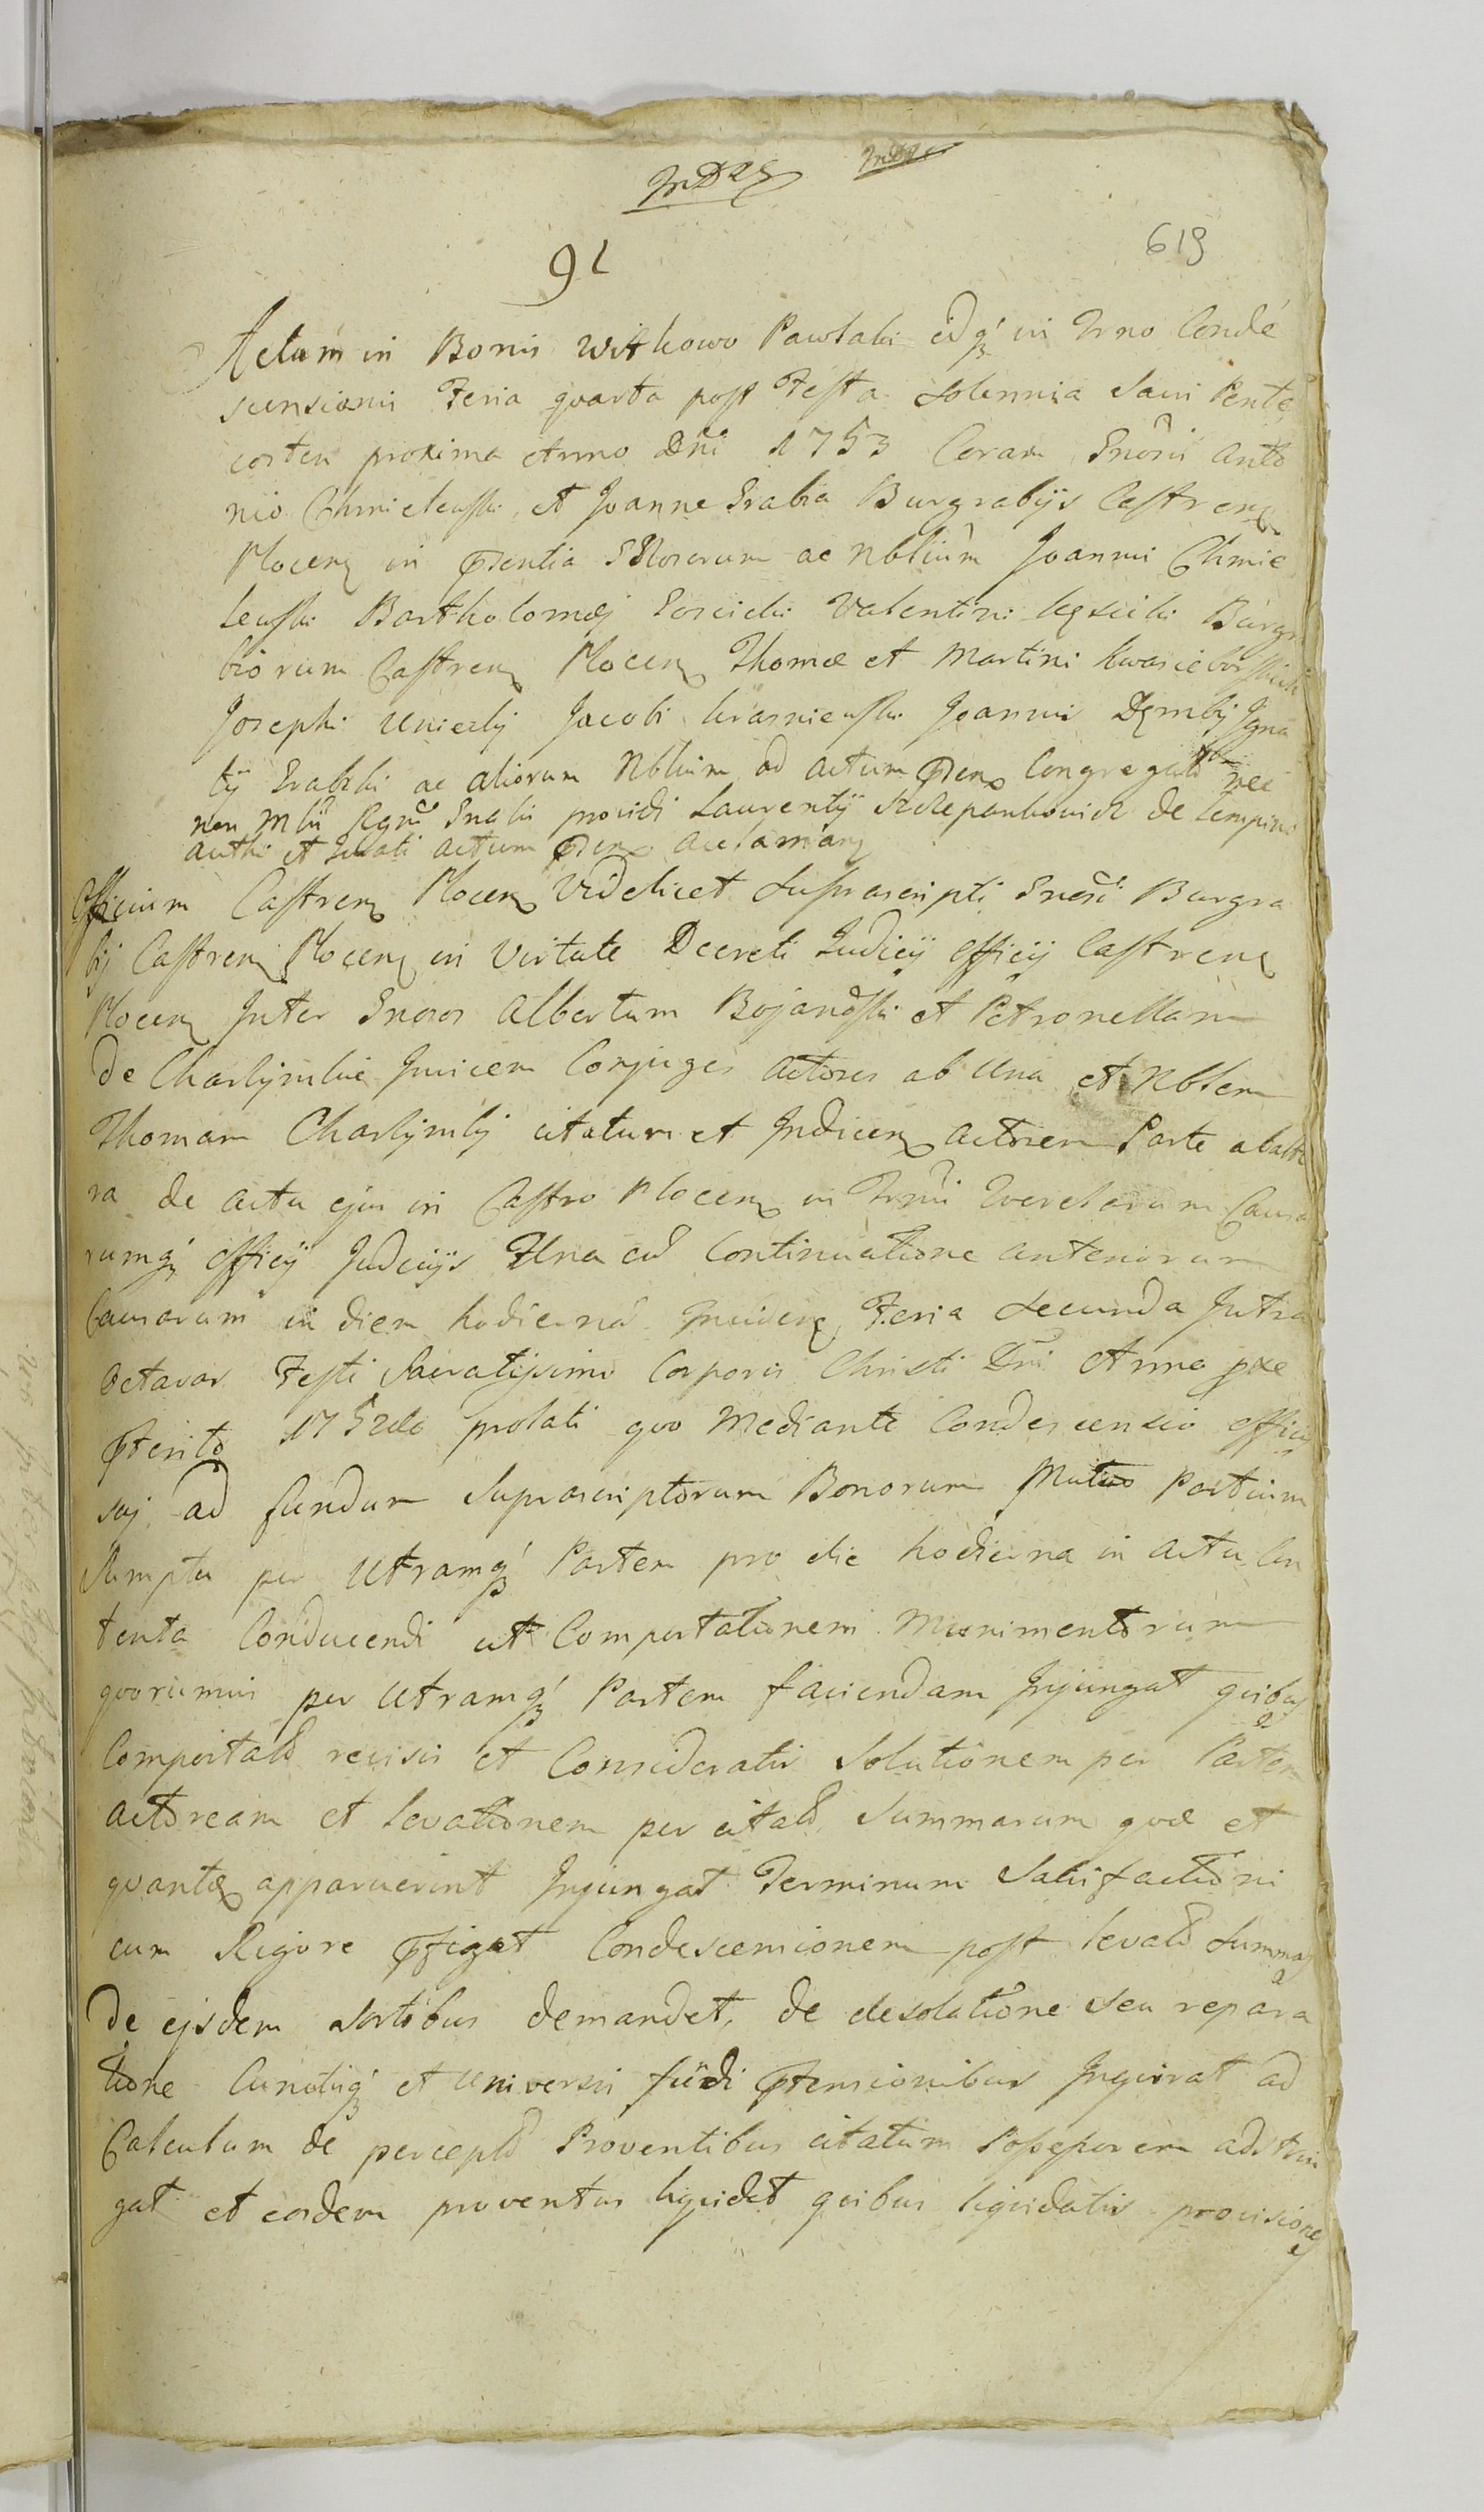 91
619
Actum in Bonis Witkowo Pawłaki idq́ in Trno Conde
scensionis Feria quarta post Festa Solennia Sacri Pente
costen proxima Anno Dni 1753 Coram Gnosis Anto
nio Chmielewski et Joanne Grabia Burgrabijs Castren
Plocen in Pntia Gnlosorum ac Nblium Joannis Chmie
lewski Bartholomæj Valentini Burgra
biorum Castren Plocen Thomæ et Martini Kwasieborskich
Josephi Unierzkij Jacobi Krasniewski Joannis Dembij Igna
tij Grabskij ac aliorum Nblium ad actum Pnn Congregato nec
non Mlis Regni Gnalis providi Laurentij Szczepankowicz de
auth et Jurati actum Pnn acclaman
Officium Castren Plocen Videlicet Suprascripti Gnosi Burgra
bij Castren Plocen in Virtute Decreti Judicij Officij Castren
Plocen Inter Gnosos Albertum Bojanowski et Petronellam
de Charlijmskie Invicem Conjuges Actores ab Una et Nblem
Thomam Charlijmskij citatum et Indicen actorem Parte ab alte
ra de actu ejus in Castro Plocen in Trnis Querelarum Causa
rumq́ Officij Judicijs Una cu Continuatione anteriorum
Causarum in diem hodierna Inciden Feria Secunda Intra
Octavas Festi Sacratissimi Corporis Christi Dni Anno pxe
Pterito 1752do prolati quo Mediante Condescensio Officij
suj ad fundum Suprascriptorum Bonorum Mutuo Partium
Sumptu per Utramq́ Partem pro die hodierna in actu Con
tenta Conducendi ut Comportationem Munimentorum
quorumvis per Utramq́ Partem faciendam Injungat quibus
Comportatis revisis et Consideratis Solutionem per Partem
actoream et levationem per citatos Summarum quæ et
quantæ apparuerint Injungat Terminum Satisfactionis
cum Rigore Pfigat Condescensionem post levatas Summas
de ejsdem Sortibus demandet, de desolatione seu repara
tione Cunctisq́ et Universis fūdi Ptensionibus Inquirat ad
Calculum de perceptis Proventibus citatum Possessorem adstrin
gat et eosdem proventus liquidet quibus liquidatis provisiones